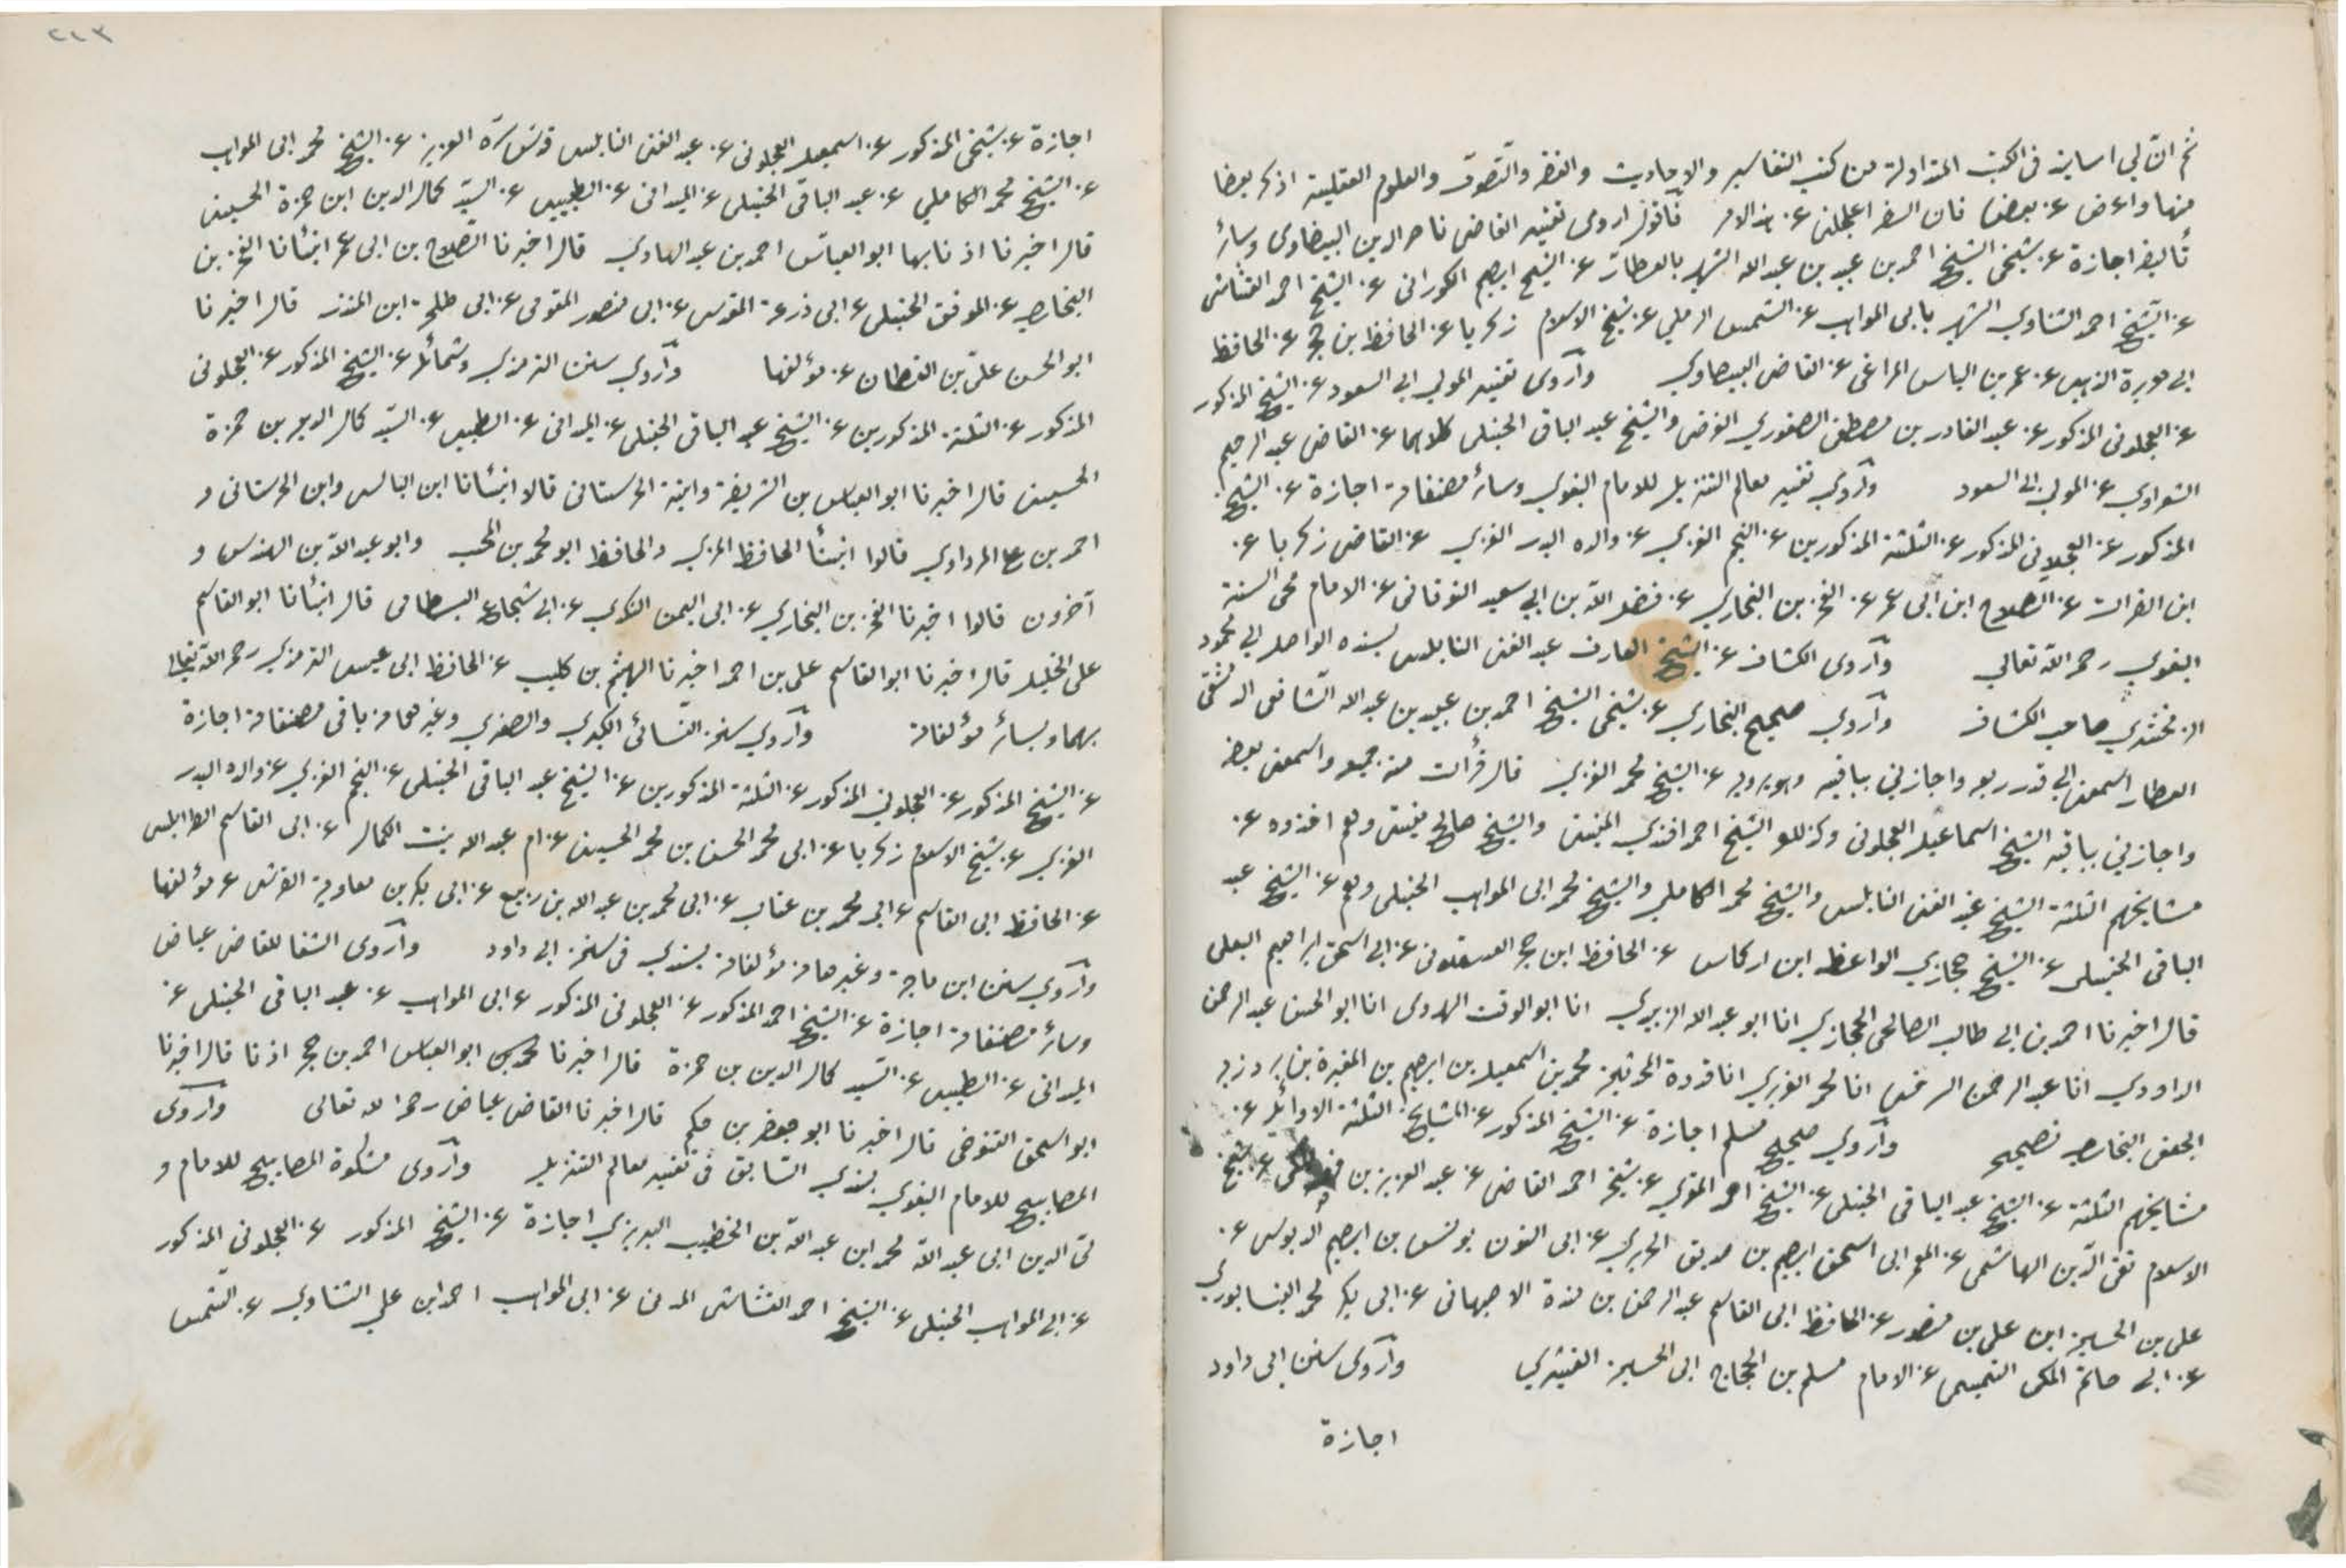 ثم ان لي اسانيد في الكتب المتداولة من كتب التفاسير والاحاديث والفقه والتصوف والعلوم العقلية اذكر بعضا
منها واعرض عن بعضها فان السفر اعجلني عن هذا الامر فاقول اروى تفسير القاضى ناصر الدين البيضاوى وسائر
تأليفه اجازة عن شيخى الشيخ احمد بن عبيد بن عبد الله الشهير بالعطار عن الشيخ ابرهيم الكورانى عن الشيخ احمد القشاشى
عن الشيخ احمد الشناوي الشهير بابى المواهب عن الشمس الرملي عن شيخ الاسلام زكريا عن الحافظ بن حجر عن الحافظ
ابي هريرة الذهبى عن عمر بن الياس المراغى عن القاضى البيضاوي وأروى تفسير المولى ابي السعود عن الشيخ المذكور
عن العجلونى المذكور عن عبد القادر بن مصطفى الصفوري الفرضى والشيخ عبد الباقى الحنبلى كلاهما عن القاضى عبد الرحيم
الشعراوي عن المولى ابى السعود وأروي تفسير معالم التنزيل للامام البغوي وسائر مصنفاته اجازة عن الشيخ
المذكور عن العجلونى المذكور عن الثلثة المذكورين عن النجم الغزي عن والده البدر الغزي عن القاضى زكريا عن
ابن الفرات عن الصلاح ابن ابى عمر عن الفخر بن البخاري عن فضل الله بن ابي سعيد النوقانى عن الامام محى السنة
البغوي رحمه الله تعالى وأروى الكشاف عن الشيخ العارف عبد الغنى النابلسى بسنده الواصل الى محمود
الزمخشري صاحب الكشاف وأروي صحيح البخاري عن شيخى الشيخ احمد بن عبيد بن عبد الله الشافعى الدمشقى
العطار اسمعنى الى قدر ربعه واجازني بباقيه وهو يرويه عن الشيخ محمد الغزي قال قرأت منه جميعه واسمعنى بعضه
واجازني بباقيه الشيخ اسماعيل العجلونى وكذلك الشيخ احمد افندي المنينى والشيخ صالح وهم اخذوه عن
مشايخهم الثلثة الشيخ عبد الغنى النابلسى والشيخ محمد الكاملي والشيخ محمد ابى المواهب الحنبلى وهم عن الشيخ عبد
الباقى الحنبلى عن الشيخ حجازي الواعظ ابن اركماس عن الحافظ ابن حجر العسقلونى عن ابي اسحق ابراهيم البعلى
قال اخبرنا احمد بن ابي طالب الصالحى الحجازي انا ابو عبد الله الزبيدي انا ابو الوقت الهروى انا ابو الحسن عبد الرحمن
الداودي انا عبد الرحمن السرخسى انا محمد الفربري انا قدوة المحدثين محمد بن اسمعيل بن ابرهيم بن المغيرة بن بردزبه
الجعفى البخارى بصحيحه وأروي صحيح مسلم اجازة عن الشيخ المذكور عن المشايخ الثلثة الاوائل عن
مشايخهم الثلثة عن الشيخ عبد الباقى الحنبلى عن الشيخ احمد المقري عن شيخه احمد القاضى عن عبد العزيز بن فهد المكى عن شيخ
الاسلام تقى الدين الهاشمى عن المعمر ابى اسحق ابرهيم بن صديق عن ابى النون يونس بن ابرهيم الدبوسى عن
على بن الحسين ابن على بن منصور عن الحافظ ابى القاسم عبد الرحمن بن مندة الاصبهانى عن ابى بكر محمد النيسابوري
عن ابي حاتم المكى التميمى عن الامام مسلم بن الحجاج ابى الحسين القشيري وأروى سنن ابى داود
اجازة
٢٤٣
اجازة عن شيخى المذكور عن اسمعيل العجلونى عن عبد الغنى النابلسى قدس سره العزيز عن الشيخ محمد ابى المواهب
عن الشيخ محمد الكاملي عن عبد الباقى الحنبلى عن الميدانى عن الطيبى عن السيد كمال الدين ابن حمزة الحسينى
قال اخبرنا اذنا بها ابو العباس احمد بن عبد الهادي قال اخبرنا الصلاح بن ابى عمر انبأنا الفخر بن
البخارى عن الموفق الحنبلى عن ابى زرعة المقدسى عن ابى منصور المقومى عن ابى طلحة ابن المنذر قال اخبرنا
ابو الحسن على بن القطان عن مؤلفها وأروي سنن الترمذي وشمائله عن الشيخ المذكور عن العجلونى
المذكور عن الثلثة المذكورين عن الشيخ عبد الباقى الحنبلى عن الميدانى عن الطيبى عن السيد كمال الدين بن حمزة
الحسينى قال اخبرنا ابو العباس بن الشريفة وابنة الحرستانى قالا انبأنا ابن البالسى وابن الحرستانى و
احمد بن على المرداوي قالوا انبأنا الحافظ المزي والحافظ ابو محمد بن المحب وابو عبد الله بن المهندس و
آخرون قالوا اخبرنا الفخر بن البخاري عن ابى اليمن الكندي عن ابى شجاع البسطامى قال انبأنا ابو القاسم
على الخليل قال اخبرنا ابو القاسم على بن احمد اخبرنا الهيثم بن كليب عن الحافظ ابى عيسى الترمذي رحمه الله تعالى
بهما وبسائر مؤلفاته وأروي سنن النسائى الكبرى والصغرى وغيرهما من باقى مصنفاته اجازة
عن الشيخ المذكور عن العجلونى المذكور عن الثلثة المذكورين عن الشيخ عبد الباقى الحنبلى عن النجم الغزي عن والده البدر
الغزي عن شيخ الاسلام زكريا عن ابى محمد الحسن بن محمد الحسينى عن ام عبد الله بنت الكمال عن ابى القاسم الطرابلسى
عن الحافظ ابى القاسم عن ابى محمد بن عتاب عن ابى محمد بن عبد الله بن ربيع عن ابى بكر بن معاوية القرشى عن مؤلفها
وأروي سنن ابن ماجة وغيرها من مؤلفاته بسندي فى سنن ابى داود وأروى الشفا للقاضى عياض
وسائر مصنفاته اجازة عن الشيخ احمد المذكور عن العجلونى المذكور عن ابى المواهب عن عبد الباقى الحنبلى عن
الميدانى عن الطيبى عن السيد كمال الدين بن حمزة قال اخبرنا ابو العباس احمد بن حجر اذنا قال اخبرنا
ابو اسحق التنوخى قال اخبرنا ابو جعفر بن حكم قال اخبرنا القاضى عياض رحمه الله تعالى وأروى
المصابيح للامام البغوي بسندي السابق فى تفسير معالم التنزيل وأروى مشكوة المصابيح للامام و
لى الدين ابى عبد الله محمد ابن عبد الله بن الخطيب التبريزي اجازة عن الشيخ المذكور عن العجلونى المذكور
عن ابى المواهب الحنبلى عن الشيخ احمد القشاشى المدنى عن ابى المواهب احمد ابن علي الشناوي عن الشمس